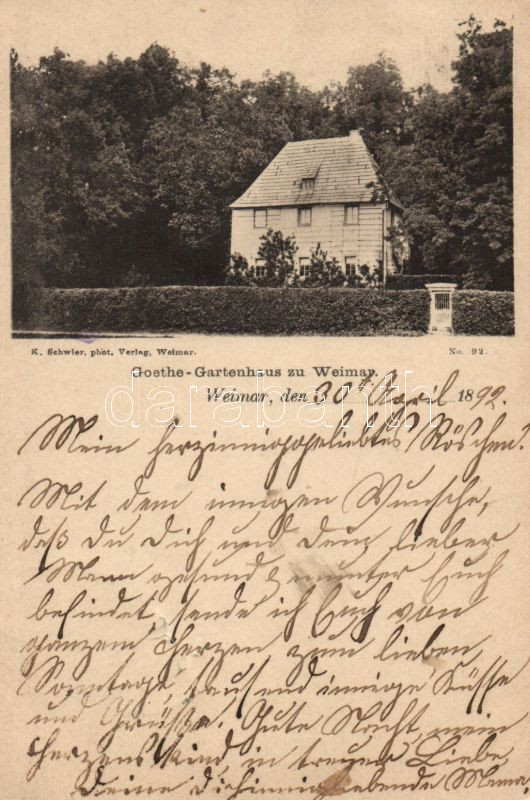 K. Schwier, phot. Verlag, Weimar. No. 92.
Goethe-Gartenhaus zu Weimar.
darabanth
Weimar, den 30t. April 1892.
Mein herzinniggeliebtes Röschen!
Mit dem innigen Wunsche,
daß Du Dich und Dein lieber
Mann gesund & munter Euch
befindet, sende ich Euch von
ganzem Herzen zum lieben
Sonntage, tausend innige Küsse
und Grüße. Gute Nacht, mein
Herzenskind, in treuer Liebe
Deine Dichinnigliebende Mama